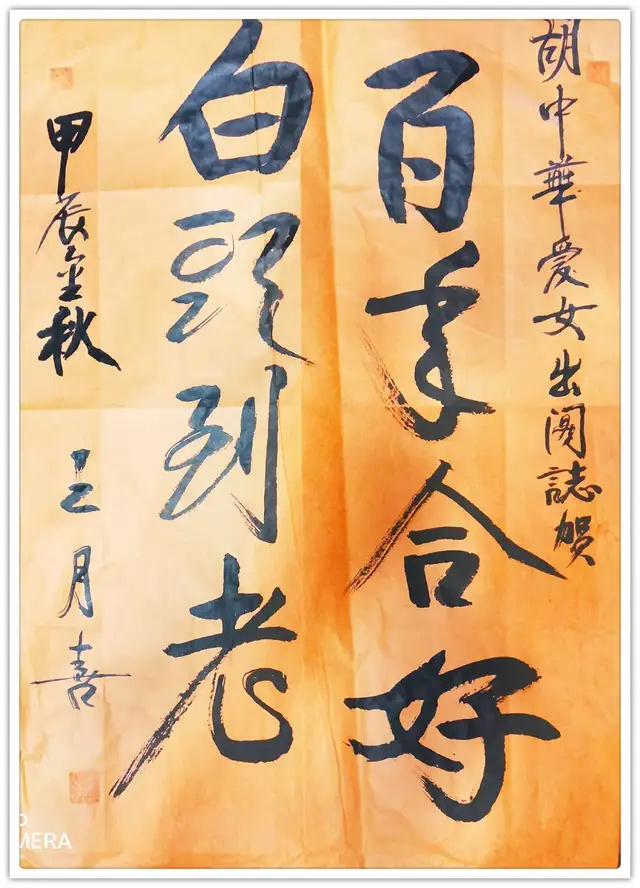 胡中華愛女出閣誌賀
百年合好
白頭到老
甲辰金秋 王月喜
MERA